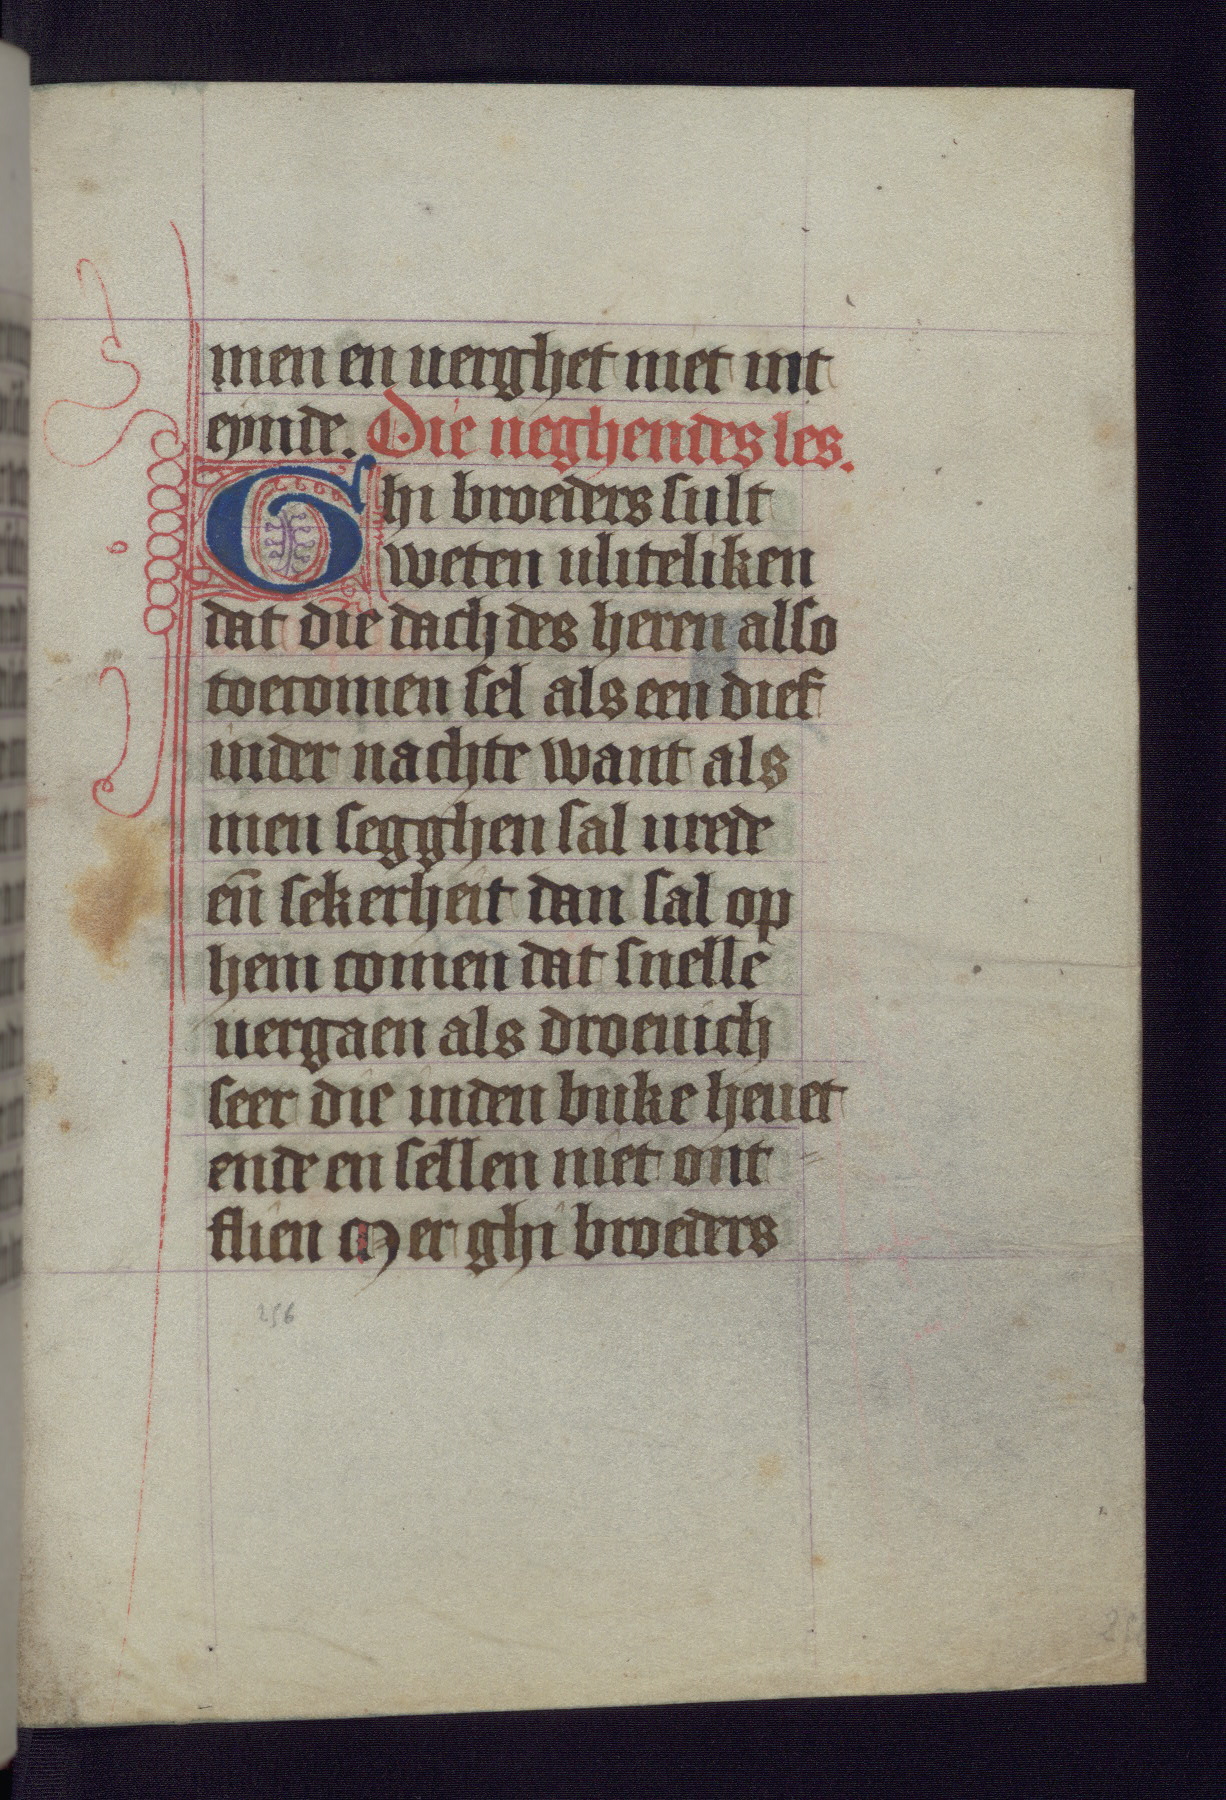 men en uerghet niet int
eynde. Die neghendes les.
Ghi broeders sult
weten uliteliken
dat die dach des heren also
toecomen sel als een dief
inder nachte want als
men segghen sal urede
en̄ sekerheit dan sal op
hem comen dat snelle
uergaen als droeuich
seer die inden buke heuet
ende en sellen niet ont
flien Mer ghi broeders
256